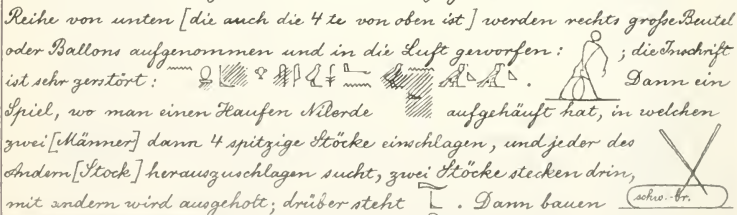 Reihe von unten [die auch die 4te von oben ist] werden rechts große Beutel
oder Ballons aufgenommen und in die Luft geworfen: ; die Inschrift
ist sehr zerstört: . Dann ein
Spiel, wo man einen Haufen Nilerde aufgehäuft hat, in welchen
zwei [Männer] dann 4 spitzige Stöcke einschlagen, und jeder des
Andern [Stock] herauszuschlagen sucht, zwei Stöcke stecken drin,
mit andern wird ausgeholt; drüber steht . Dann bauen schw.-br.